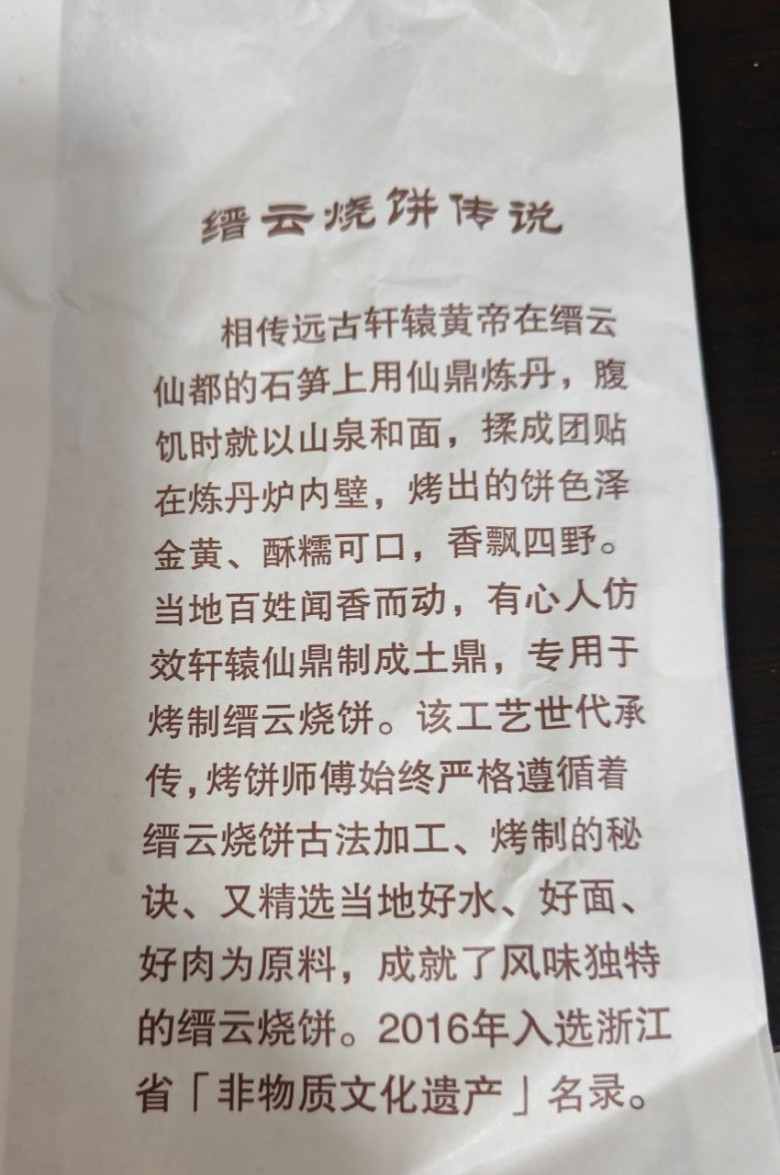 缙云烧饼传说
相传远古轩辕黄帝在缙云
仙都的石笋上用仙鼎炼丹，腹
饥时就以山泉和面，揉成团贴
在炼丹炉内壁，烤出的饼色泽
金黄、酥糯可口，香飘四野。
当地百姓闻香而动，有心人仿
效轩辕仙鼎制成土鼎，专用于
烤制缙云烧饼。该工艺世代承
传，烤饼师傅始终严格遵循着
缙云烧饼古法加工、烤制的秘
诀、又精选当地好水、好面、
好肉为原料，成就了风味独特
的缙云烧饼。2016年入选浙江
省「非物质文化遗产」名录。